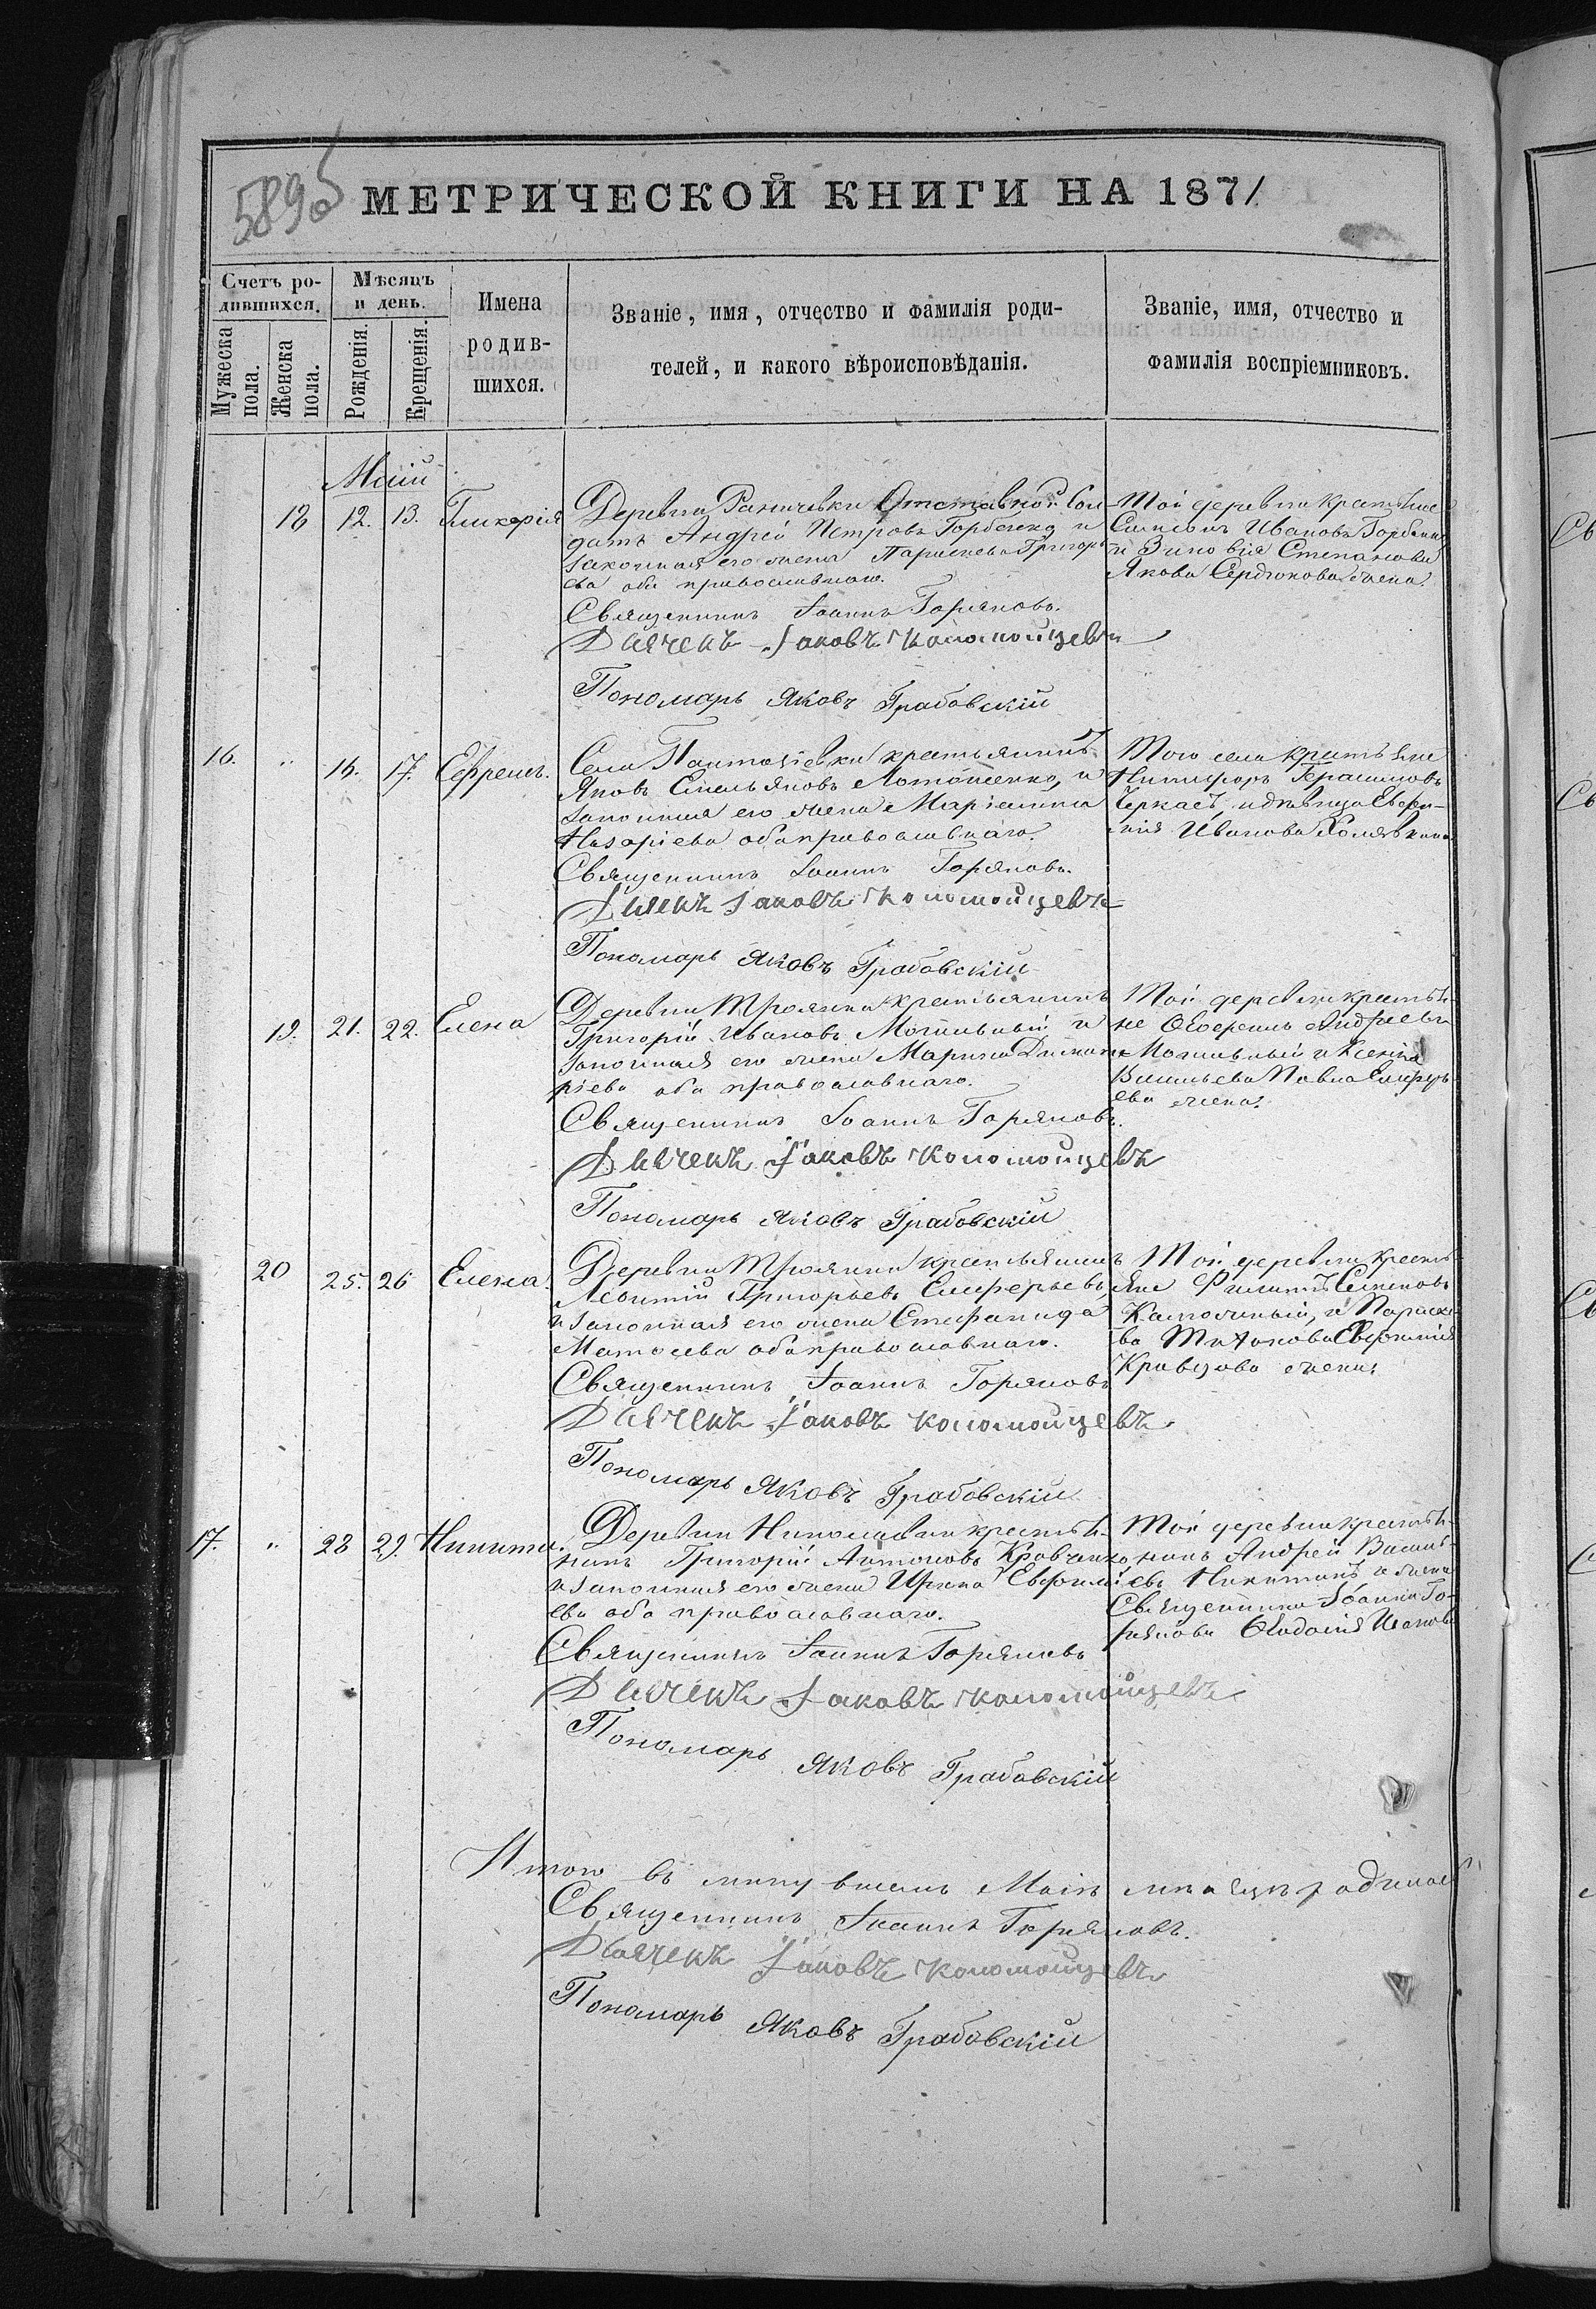 589об
МЕТРИЧЕСКОЙ КНИГИ НА 1871
Счетъ ро-
дившихся.
Мѣсяцъ
и день.
Имена
родив-
шихся.
Званіе, имя, отчество и фамилія роди-
телей, и какого вѣроисповѣданія.
Званіе, имя, отчество и
фамилія воспріемниковъ.
Мужеска
пола.
Женска
пола.
Рожденія.
Крещенія.
Май
18 12. 13. Гликерія
Деревни Отставной Сол-
датъ Андрей Петровъ Горбенко и
законная его жена Параскева Григорь-
ева оба православнаго.
Священникъ Іоаннъ Горяновъ.
Дьячекъ Іаковъ Коломойцевъ
Пономарь Яковъ Грабовскій
Той деревни крестьяне
Самсонъ Ивановъ Горбенко
и Зиновія Степанова
Якова Сердюкова жена.
16. " 16. 17. Ефремъ.
Села Пантазіевки крестьянинъ
Яковъ Емельяновъ и
законная его жена Маріанна
Назаріева оба православнаго.
Священникъ Іоаннъ Горяновъ.
Дьячекъ Іаковъ Коломойцевъ
Пономарь Яковъ Грабовскій
Того села крестьяне
Никифоръ Герасимовъ
Черкасъ, и дѣвица Евфи-
мія Иванова
19. 21. 22. Елена
Деревни Троянки крестьянинъ
Григорій Ивановъ Могильный и
законная его жена Марина Димит-
ріева оба православнаго.
Священникъ Іоаннъ Горяновъ.
Дьячекъ Іаковъ Коломойцевъ
Пономарь Яковъ Грабовскій
Той деревни крестья-
не Андреевъ
Могильный и Ксенія
Васильева Павла Елифер-
ева жена.
20 25. 26 Елена
Деревни Троянки крестьянинъ
Леонтій Григорьевъ Елиферьевъ,
и законная его жена Стефанида
Матѳеева оба православнаго.
Священникъ Іоаннъ Горяновъ
Дьячекъ Іаковъ Коломойцевъ
Пономарь Яковъ Грабовскій
Той деревни кресть-
яне Филиппъ Семеновъ
и Параске-
ва Евфимія
Кравцова жена
17. " 28 29. Никита.
Деревни Николаевки крестья-
нинъ Григорій Антоновъ Кравченко
и законная его жена Ирина Евфимі-
ева оба православнаго.
Священникъ Іоаннъ Горяновъ
Дьячекъ Іаковъ Коломойцевъ
Пономарь Яковъ Грабовскій
Той деревни крестья-
нинъ Андрей Василь-
евъ Никитинъ и жена
Священника Іоанна Го-
рянова Ѳеодосія Иванов
Итого въ минувшемъ Маіѣ мѣсяцѣ родилос
Священникъ Іоаннъ Горяновъ.
Дьячекъ Іаковъ Коломойцевъ
Пономарь Яковъ Грабовскій